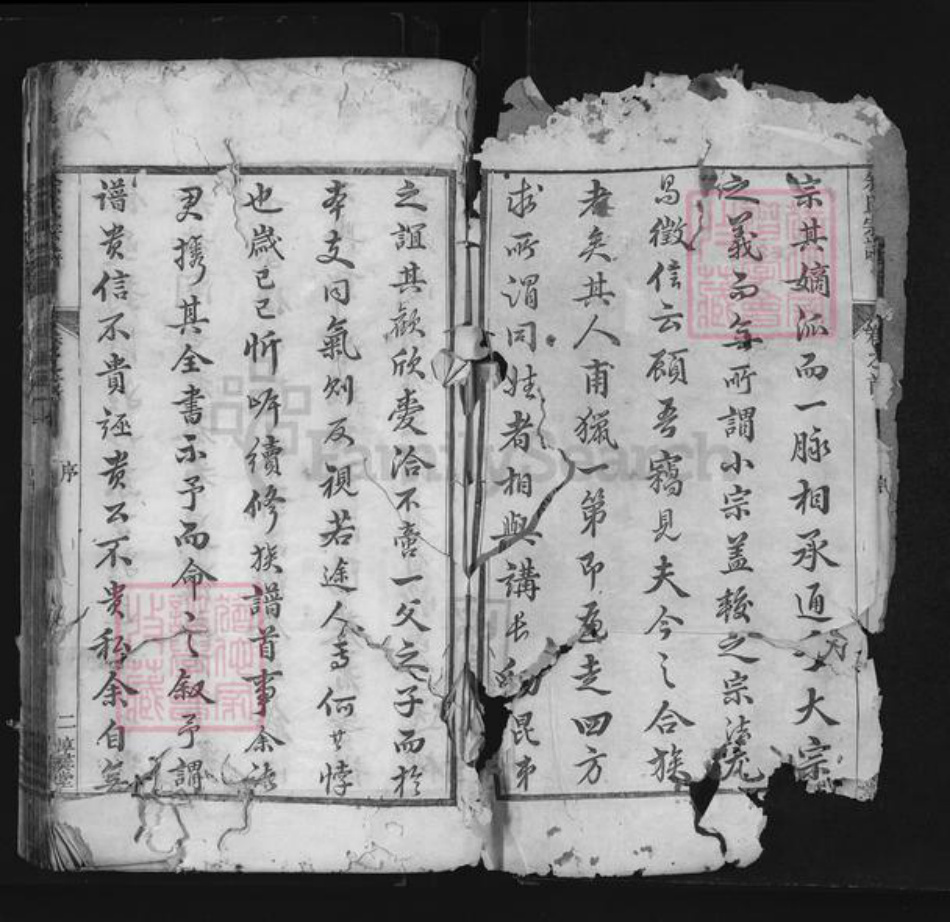 宗其嫡派而一脉相承通為大宗
之義而無所謂小宗盖較之宗法尤
易徵信云顧吾竊見夫今之合族
者矣其人甫獵一第即亟走四方
求所謂同姓者相與講長幼昆弟
之誼其歡欣愛洽不啻一父之子而於
本支同氣則反視若途人焉何其悖
也歲己巳忻昕續修族譜首事余
君携其全書示予而命之叙予謂
谱贵信不貴誣贵公不贵私余自
序
二
FamilySearch